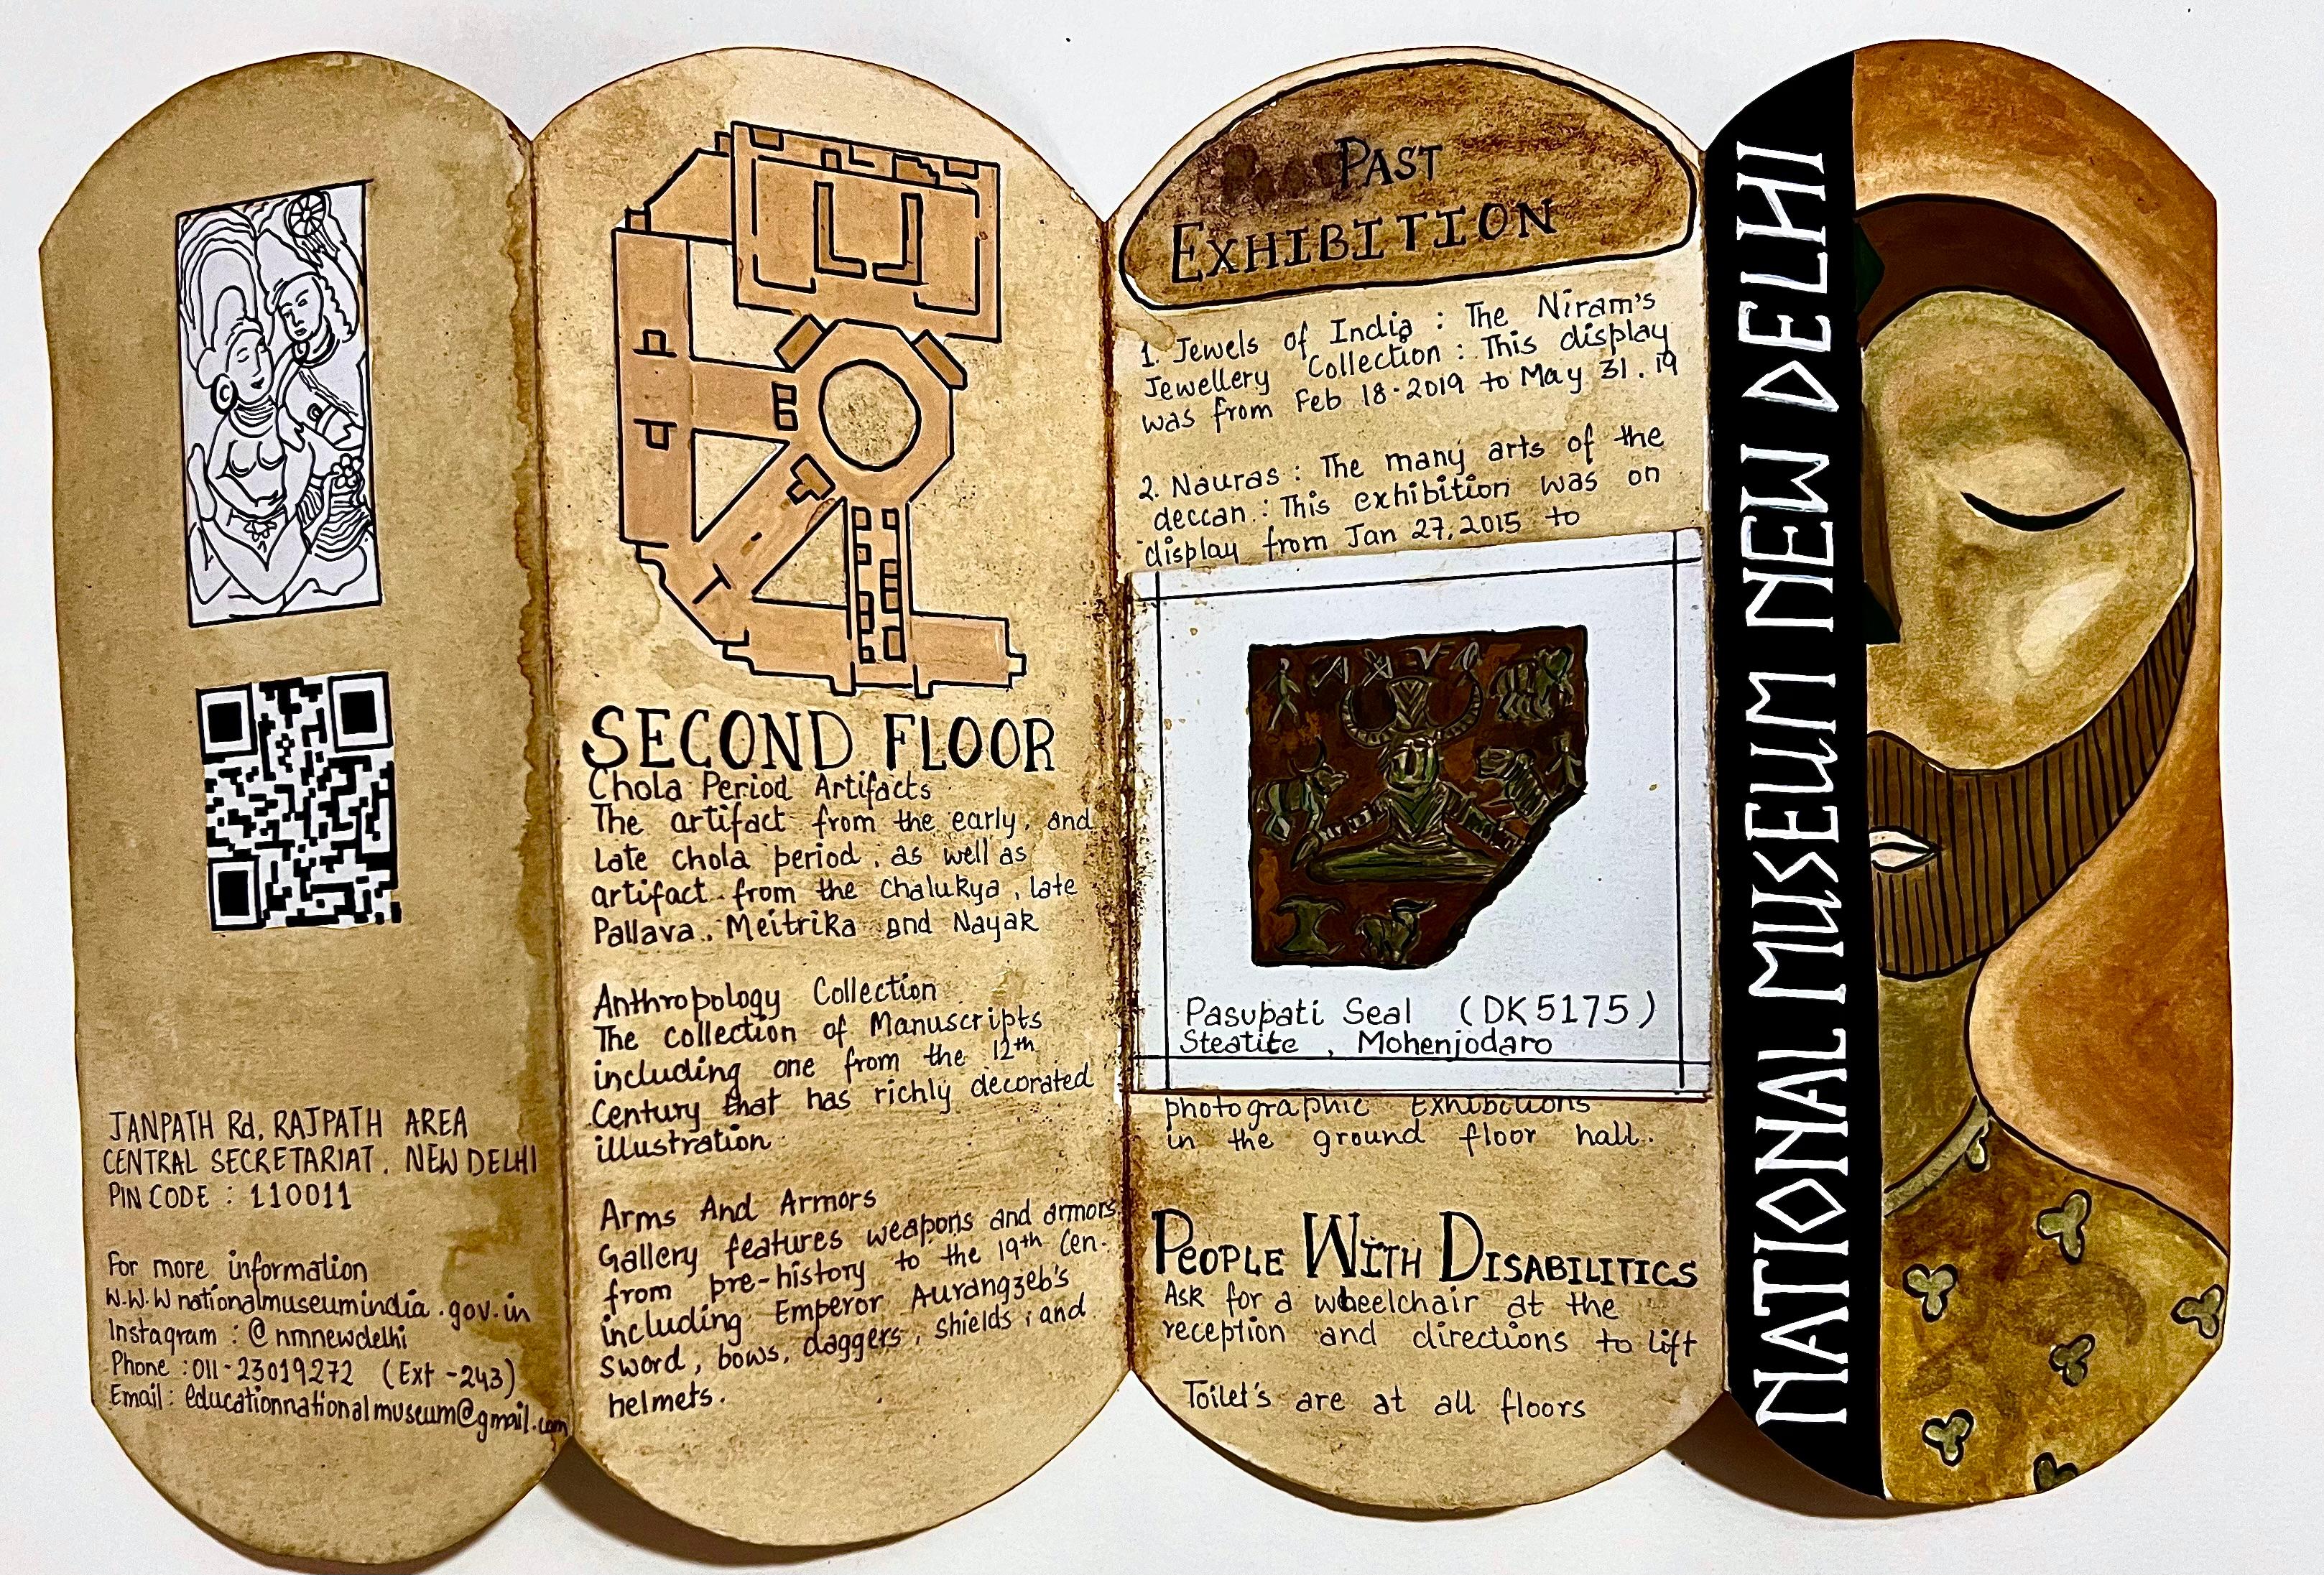 JANPATH Rd, RAJPATH AREA
CENTRAL SECRETARIAT, NEW DELHI
PIN CODE : 110011
For more information
W.W.W nationalmuseumindia.gov.in
Instagram : @ nmnewdelhi
Phone : 011-23019272 (Ext -243)
Email : educationnationalmuseum@gmail.com
SECOND FLOOR
Chola Period Artifacts
The artifact from the early, and
Late chola period, as well as
artifact from the chalukya, late
Pallava, Meitrika and Nayak
Anthropology Collection
The collection of Manuscripts
including one from the 12th
Century that has richly decorated
illustration
Arms And Armors
Gallery features weapons and armors
from pre-history to the 19th Cen-
including Emperor Aurangzeb's
sword, bows, daggers, shields, and
helmets.
PAST
EXHIBITION
1. Jewels of India : The Niram's
Jewellery Collection : This display
was from Feb 18-2019 to May 31.19
2. Nauras : The many arts of the
deccan : This exhibition was on
display from Jan 27, 2015 to
Pasupati Seal (DK 5175)
Steatite, Mohenjodaro
photographic Exhibitions
in the ground floor hall.
PEOPLE WITH DISABILITICS
Ask for a wheelchair at the
reception and directions to lift
Toilet's are at all floors
NATIONAL MUSEUM NEW DELHI